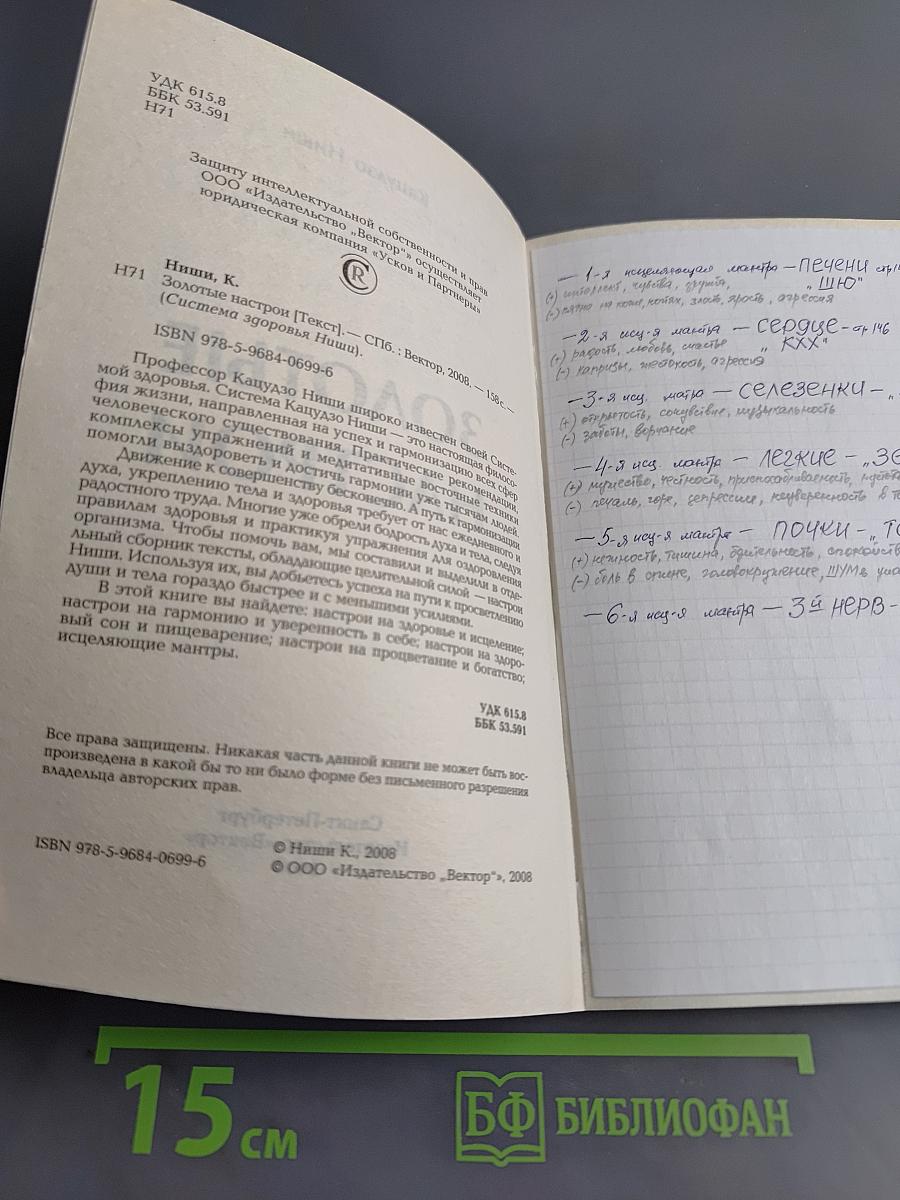 УДК 615.8
ББК 53.591
Н71
Защиту интеллектуальной собственности и прав
ООО «Издательство „Вектор"» осуществляет
юридическая компания «Усков и Партнеры»
Ниши, К.
Н71 Золотые настрои [Текст]. — СПб. : Вектор, 2008. — 158 с. —
(Система здоровья Ниши).
ISBN 978-5-9684-0699-6
Профессор Кацудзо Ниши широко известен своей Систе-
мой здоровья. Система Кацудзо Ниши — это настоящая филосо-
фия жизни, направленная на успех и гармонизацию всех сфер
человеческого существования. Практические рекомендации,
комплексы упражнений и медитативные восточные техники
помогли выздороветь и достичь гармонии уже тысячам людей.
Движение к совершенству бесконечно. А путь к гармонизации
духа, укреплению тела и здоровья требует от нас ежедневного и
радостного труда. Многие уже обрели бодрость духа и тела, следуя
правилам здоровья и практикуя упражнения для оздоровления
организма. Чтобы помочь вам, мы составили и выделили в отде-
льный сборник тексты, обладающие целительной силой — настрои
Ниши. Используя их, вы добьетесь успеха на пути к просветлению
души и тела гораздо быстрее и с меньшими усилиями.
В этой книге вы найдете: настрои на здоровье и исцеление;
настрои на гармонию и уверенность в себе; настрои на здоро-
вый сон и пищеварение; настрои на процветание и богатство;
исцеляющие мантры.
УДК 615.8
ББК 53.591
Все права защищены. Никакая часть данной книги не может быть вос-
произведена в какой бы то ни было форме без письменного разрешения
владельца авторских прав.
ISBN 978-5-9684-0699-6
© Ниши К., 2008
© ООО «Издательство „Вектор"», 2008
— 1-я исцеляющая мантра — ПЕЧЕНИ стр
„ШЮ"
(+) интеллект, чувства,
(-) пятна на коже, ногтях, злость, ярость, агрессия
— 2-я исц-я мантра — СЕРДЦЕ - стр 146
„КХХ"
(+) радость, любовь, счастье
(-) капризы, жестокость, агрессия
— 3-я исц. матра — СЕЛЕЗЕНКИ — „
(+) открытость, сочувствие, музыкальность
(-) заботы, ворчание
— 4-я исц. мантра — ЛЕГКИЕ —
(+) мужество, честность, приспосабливаемость,
(-) печаль, горе, депрессия, неуверенность в
— 5-я исц-я мантра — ПОЧКИ —
(+) нежность, тишина, бдительность,
(-) боль в спине, головокружение, ШУМ в
— 6-я исц-я мантра — 3й НЕРВ —
15 см
БФ БИБЛИОФАН